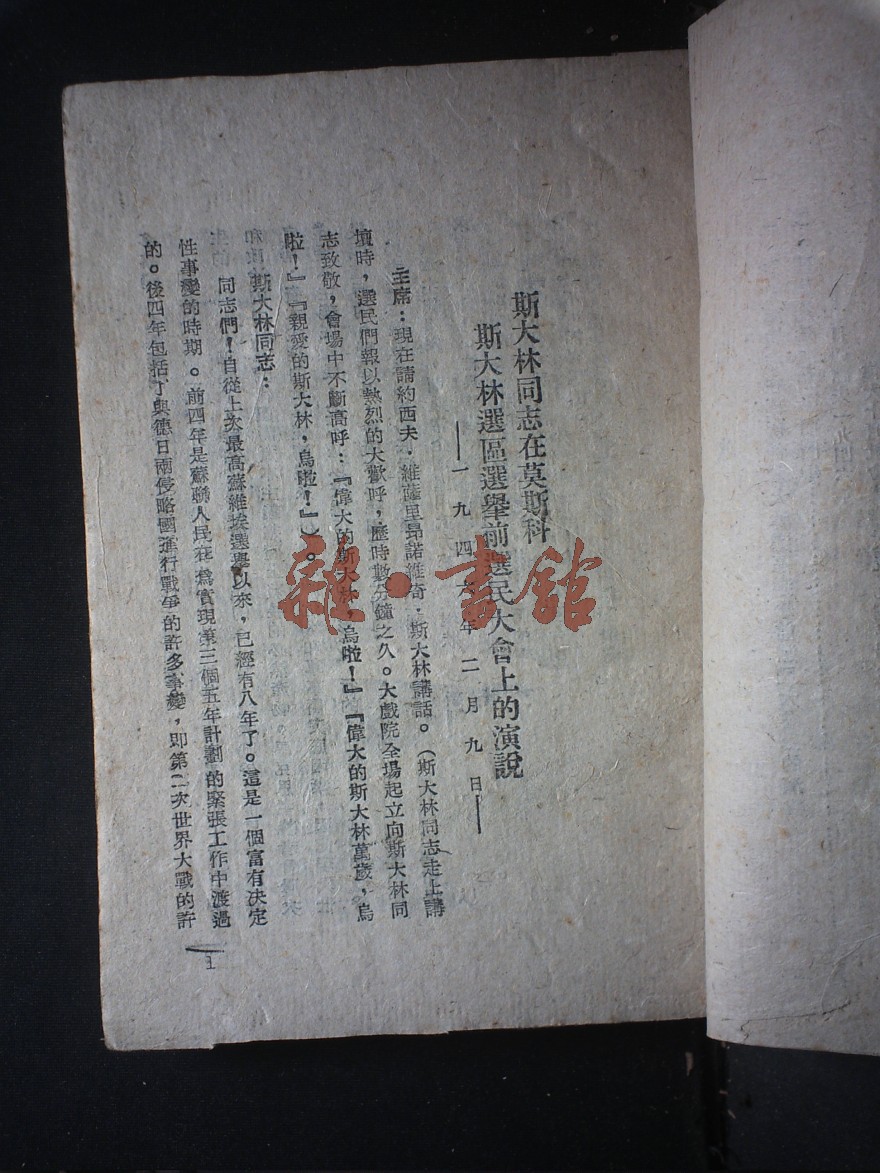 斯大林同志在莫斯科
斯大林選區選舉前選民大會上的演說
——一九四六年二月九日——
主席：現在請約西夫·維薩里昂諾維奇·斯大林講話。（斯大林同志走上講
壇時，選民們報以熱烈的大歡呼，歷時數分鐘之久。大戲院全場起立向斯大林同
志致敬，會場中不斷高呼：『偉大的斯大林，烏啦！』『偉大的斯大林萬歲，烏
啦！』『親愛的斯大林，烏啦！』）。
斯大林同志：
同志們！自從上次最高蘇維埃選舉以來，已經有八年了。這是一個富有決定
性事變的時期。前四年是蘇聯人民在爲實現第三個五年計劃的緊張工作中渡過
的。後四年包括了與德日兩侵略國進行戰爭的許多事變，即第二次世界大戰的許
1
雜·書館